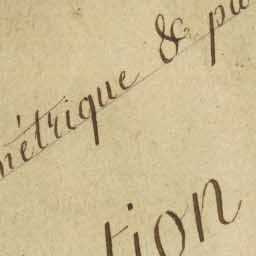 métrique & pa
tion